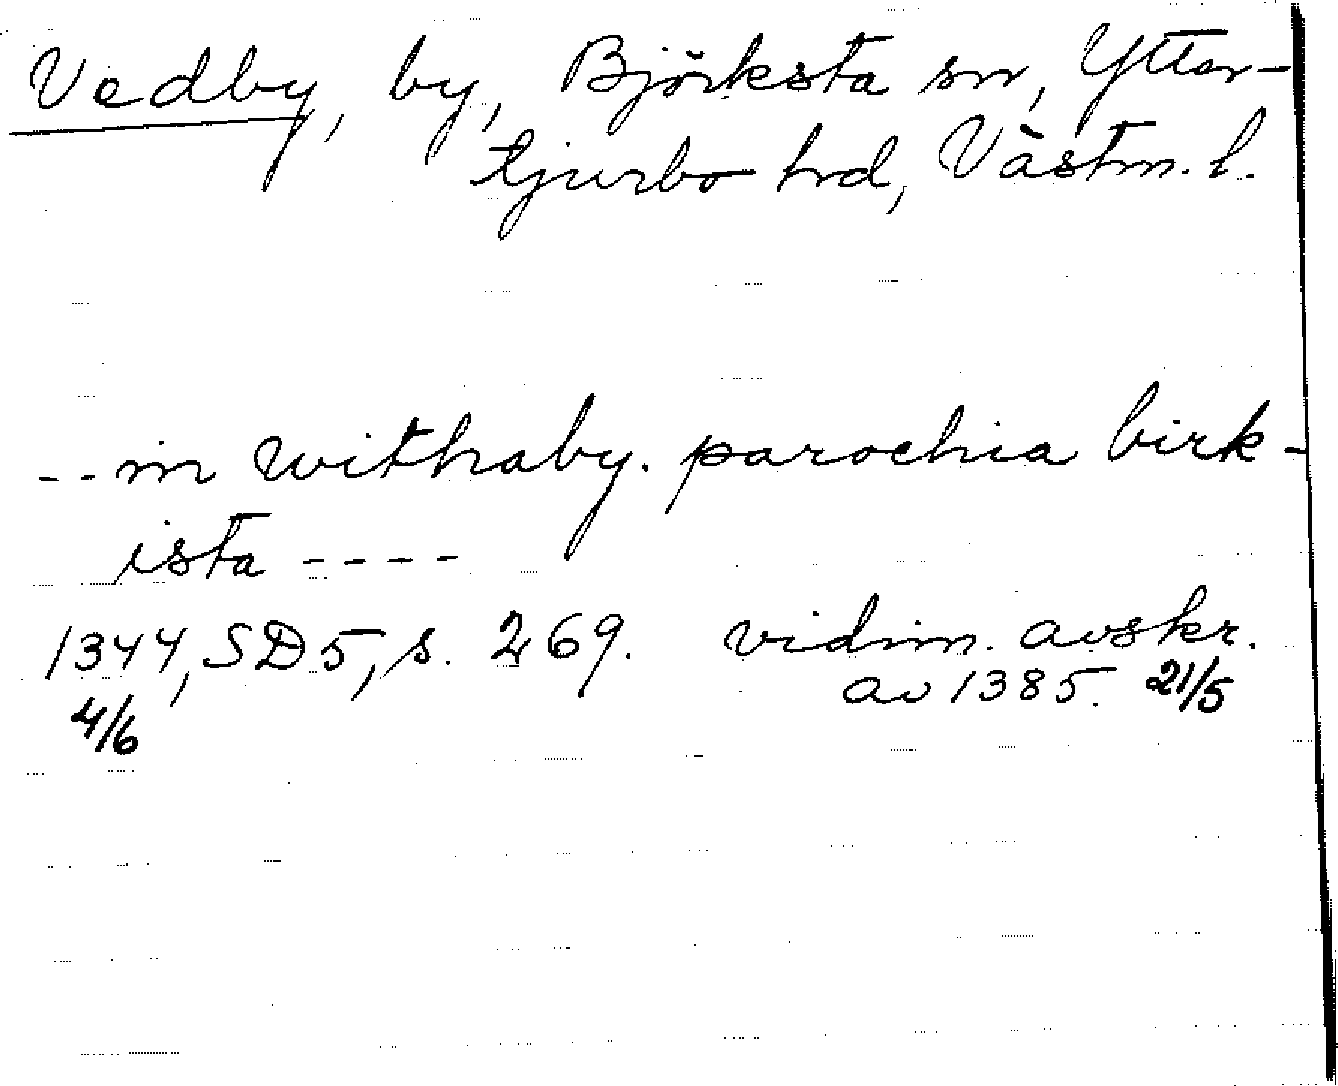 Vedby, by, Björksta sn, Ytter-
tjurbo hrd, Västm. l.
-- in withaby. parochia birk-
ista ----
1344, SD 5, s. 269. vidim. avskr.
4/6 av 1385. 21/5